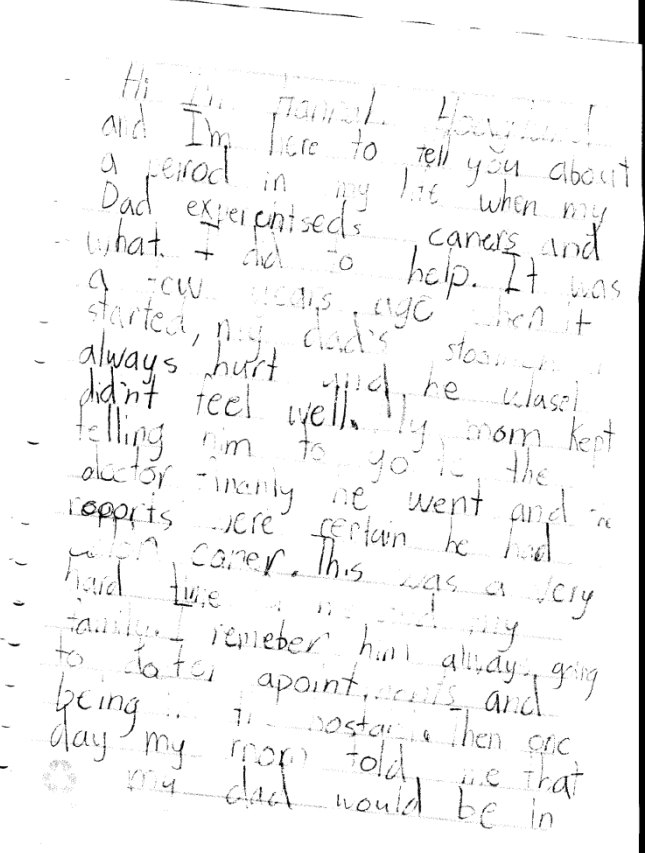 Hi I'm
and I'm here to tell you about
a peirod in my life when my
Dad experintseds caners and
what I did to help. It was
a few years ago when it
started, my dad's
always hurt and he
didn't feel well. My mom kept
telling him to go to the
doctor finanly he went and
repports were certain he had
caner. This was a very
hard time my
family. I remeber him allways going
to doctor apointments and
being in Then one
day my mom told me that
my dad would be in